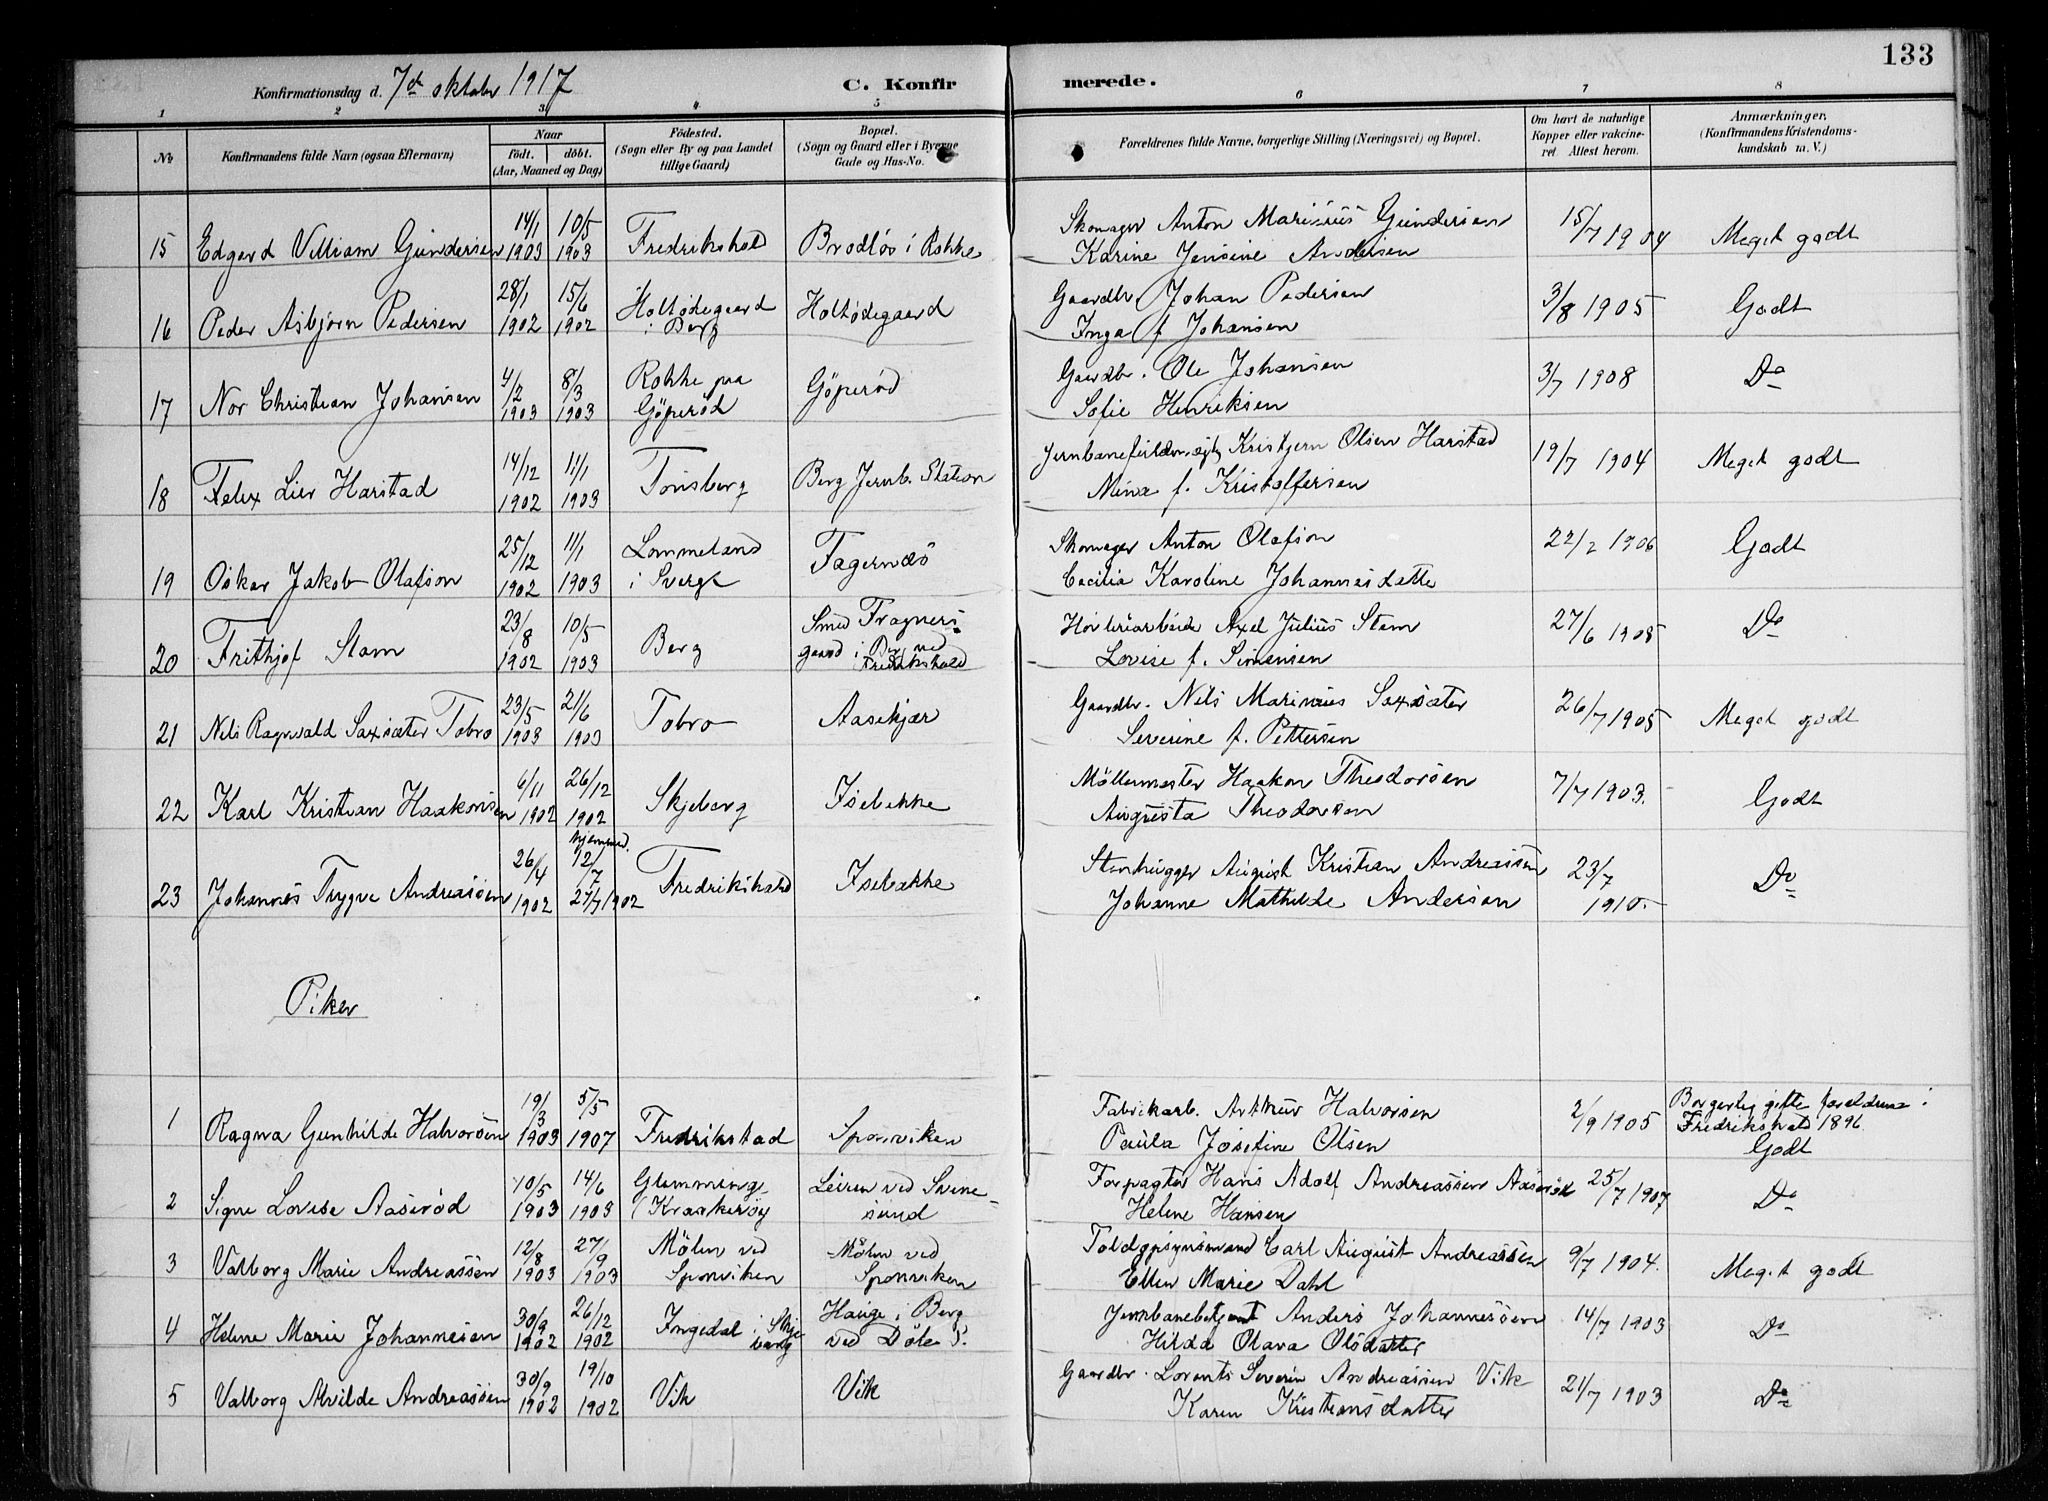 133
Konfirmationsdag d. 7de oktober 1917
C. Konfirmerede.
1 2 3 4 5 6 7 8
No
Konfirmandens fulde Navn (ogsaa Efternavn)
Naar
födt. döbt.
(Aar, Maaned og Dag)
Födested.
(Sogn eller By og paa Landet
tillige Gaard)
Bopæl.
(Sogn og Gaard eller i Byerne
Gade og Hus-No.
Forældrenes fulde Navne, borgerlige Stilling (Næringsvei) og Bopæl.
Om havt de naturlige
Kopper eller vakcine-
ret Attest herom.
Anmærkninger.
(Konfirmandens Kristendoms-
kundskab m. V.)
14/1 10/5 Skomager Anton Marinius Gundersen 15/7 1904
15 Edgard Villiam Gundersen 1903 1903 Fredrikshald Brødløs i Rokke Karine Jensine Andersen Meget godt
28/1 15/6 Holtødegaard Gaardbr. Johan Pedersen
16 Peder Asbjørn Pedersen 1902 1902 i Berg Holtødegaard Inga f. Johansen 3/8 1905 Godt
4/2 8/3 Rokke paa Gaardbr. Ole Johansen
17 Nor Christian Johansen 1903 1903 Göperöd Göperöd Sofie Henriksen 3/7 1908 Do
14/12 11/1 Kristjern Olsen Harstad
18 Felex Lier Harstad 1902 1903 Tønsberg Berg Jernb. Station Mina f. Kristoffersen 19/7 1904 Meget godt
25/12 11/1 Lommeland Skomager Anton Olafson
19 Oskar Jakob Olafson 1902 1903 i Sverge Fagernæs Cecilia Karoline Johannesdatter 22/2 1906 Godt
23/8 10/5 Smed Fragners- Axel Julius Stam
20 Frithjof Stam 1902 1903 Berg gaard i Berg ved Fredrikshald Lovise f. Simensen 27/6 1905 Do
23/5 21/6 Gaardbr. Nils Marinius Saxsæter
21 Nils Ragnvald Saxsæter Tobro 1903 1903 Tobro Aasekjær Severine f. Pettersen 26/7 1905 Meget godt
6/11 26/12 Möllermester Haakon Theodorsen
22 Karl Kristian Haakonsen 1902 1902 Skjeberg Isebakke Augusta Theodorsen 7/7 1903. Godt
hjemmed.
26/4 12/7 Stenhugger August Kristian Andreassen 23/7
23 Johannes Trygve Andreassen 1902 27/7 1902 Fredrikshald Isebakke Johanne Mathilde Andersen 1910. Do
Piker
19/3 5/5 Fabrikarb. Arthur Halvorsen Borgerlig gifte foreldrene i
1 Ragna Gunhilde Halvorsen 1903 1907 Fredrikstad Sponviken Paula Josefine Olsen 2/9 1905 Fredrikshald 1896
Godt
10/5 14/6 Glemminge Leiren ved Svine- Forpagter Hans Adolf Andreassen Aaserød
2 Signe Lovise Aaserød 1903 1903 (Kraakerøy sund Helene Hansen 25/7 1907 Do
12/8 27/9 Mölen ved Mölen ved Toldopsynsmand Carl August Andreassen
3 Valborg Marie Andreassen 1903 1903 Sponviken Sponviken Ellen Marie Dahl 9/7 1904. Meget godt
30/9 26/12 Hauge i Berg Jernbanebetjent Anders Johannessen
4 Helene Marie Johannesen 1902 1902 Ingedal i Skjeberg ved Døle S. Hilda Olava Olsdatter 14/7 1903 Do
30/9 19/10 Gaardbr. Lorents Severin Andreassen Vik
5 Valborg Alvilde Andreassen 1902 1902 Vik Vik Karen Kristiansdatter 21/7 1903 Do